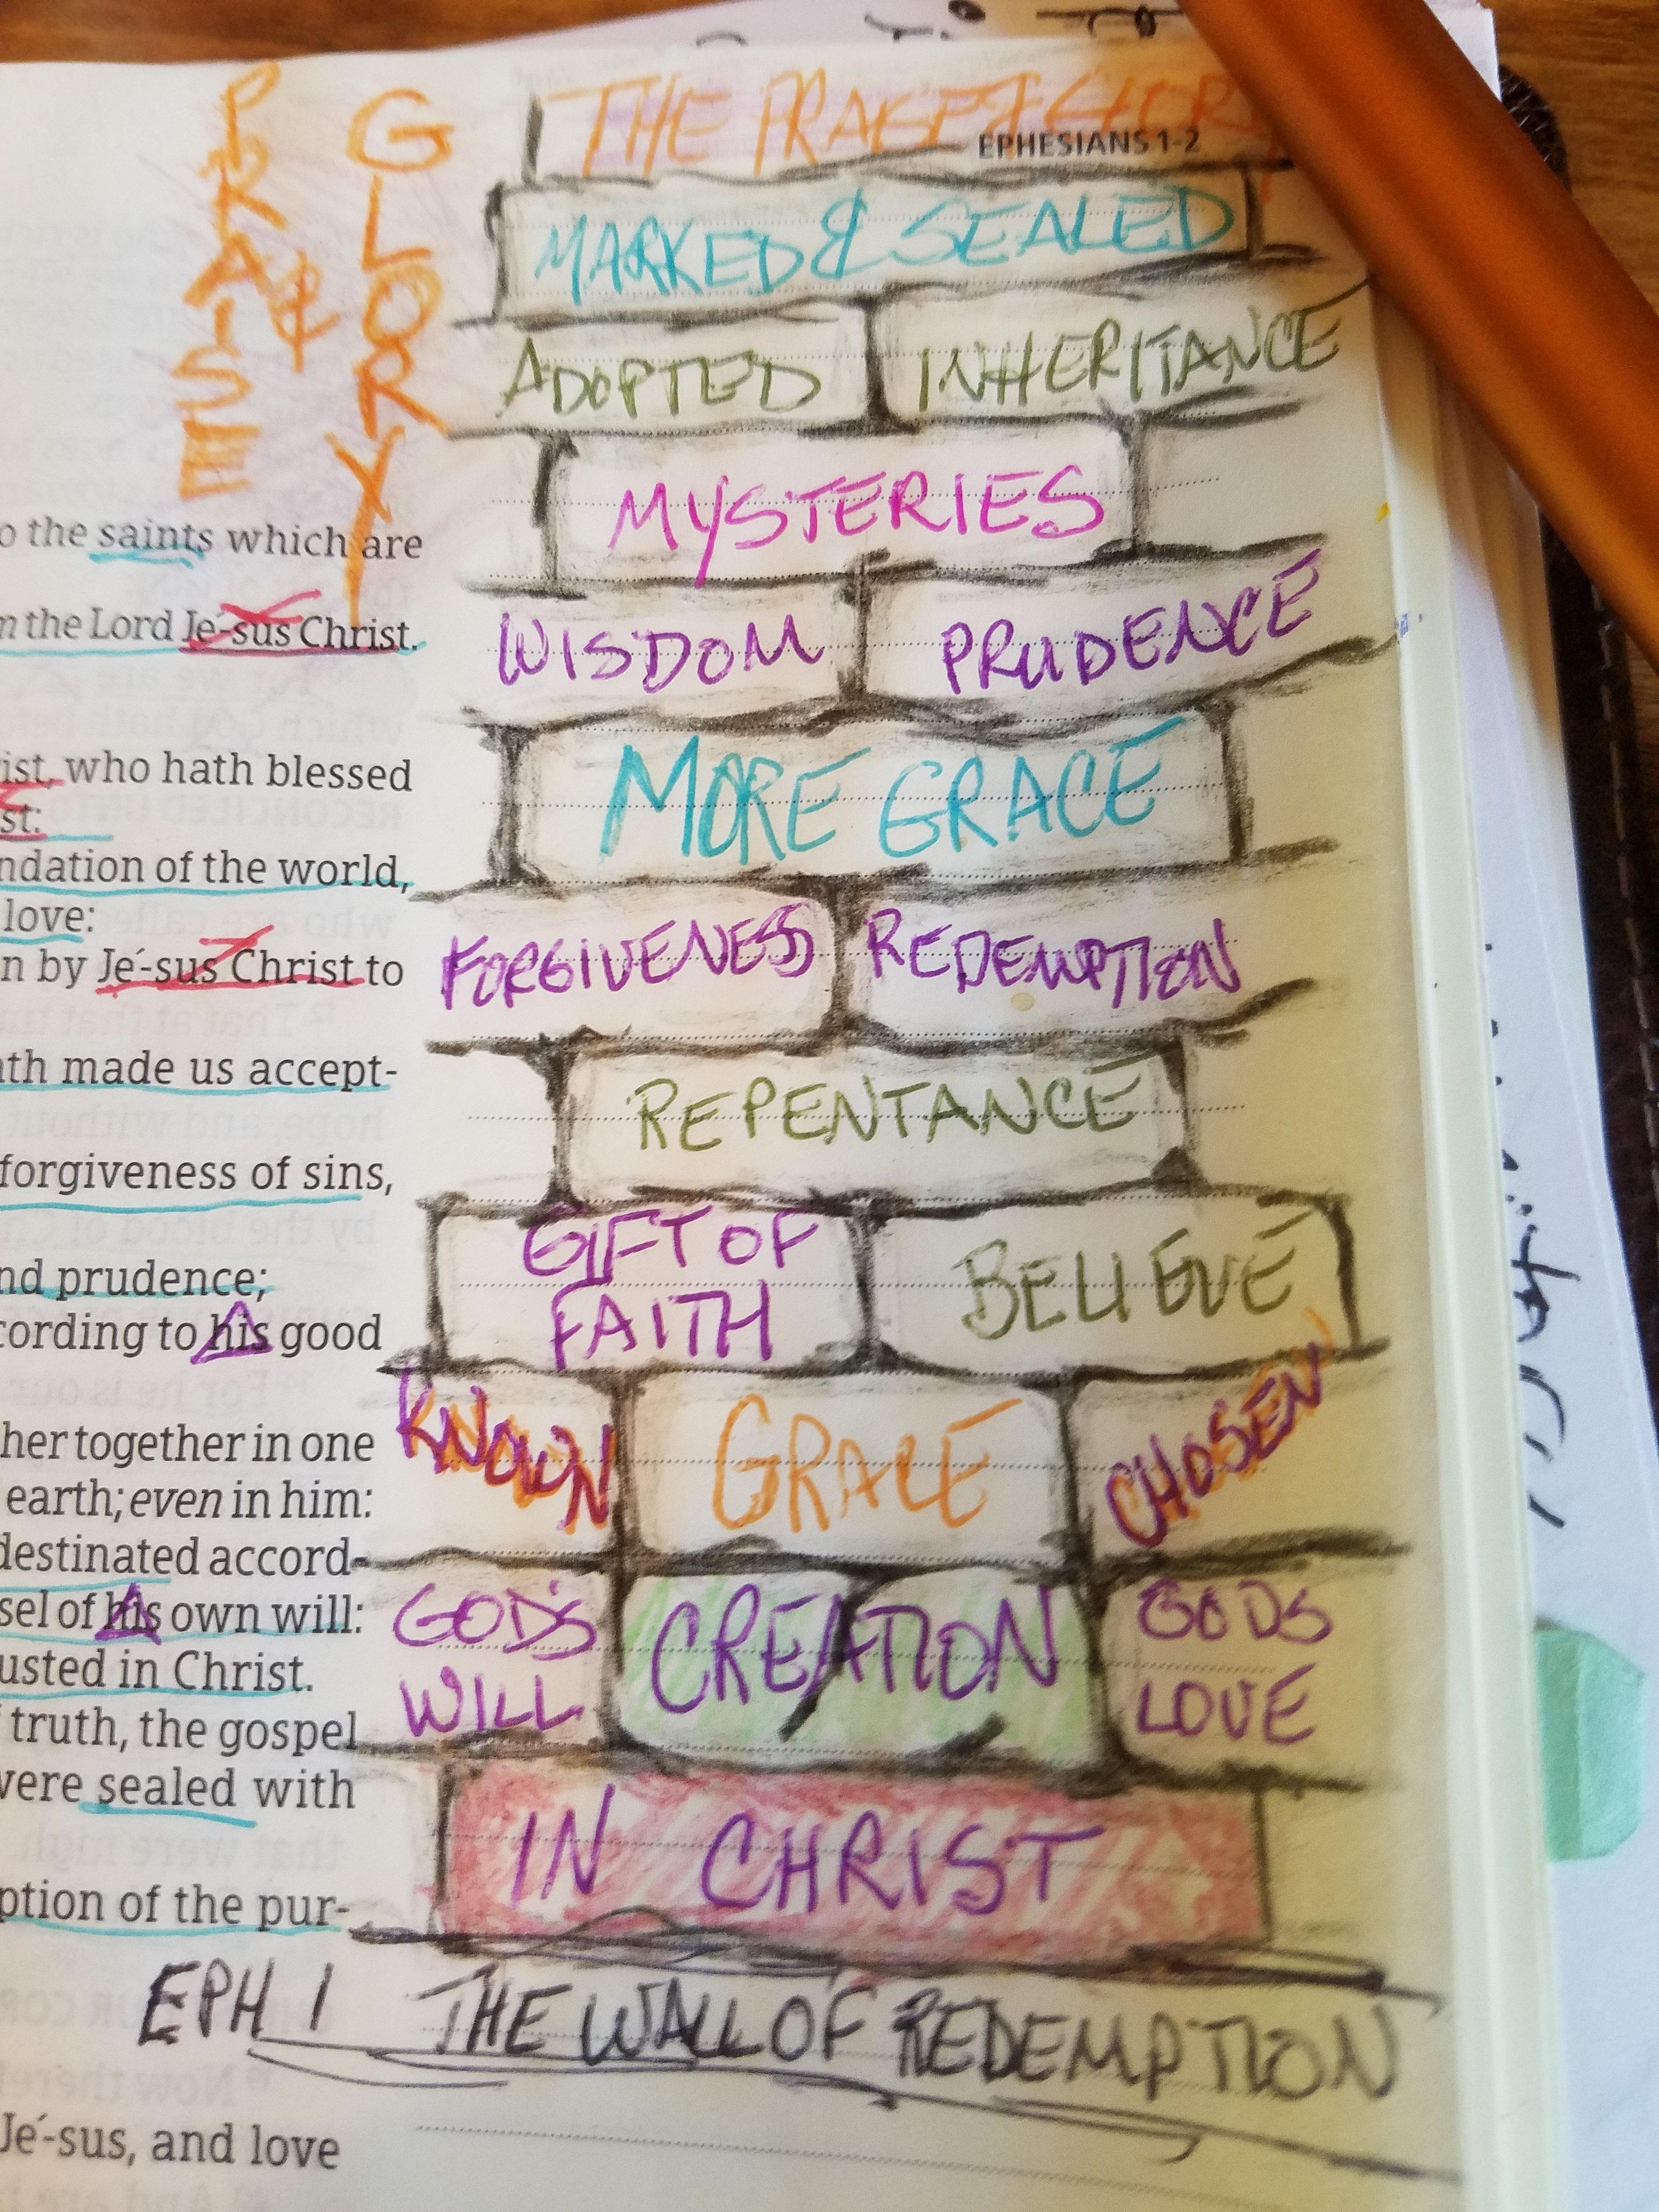 PRAISE & GLORY
THE PRAISE & GLORY
EPHESIANS 1-2
MARKED & SEALED
ADOPTED INHERITANCE
MYSTERIES
o the saints which are
WISDOM PRUDENCE
n the Lord Je´-sus Christ.
MORE GRACE
ist, who hath blessed
st:
ndation of the world,
love:
FORGIVENESS REDEMPTION
n by Je´-sus Christ to
ath made us accept-
REPENTANCE
forgiveness of sins,
GIFT OF
FAITH
BELIEVE
nd prudence;
cording to his good
KNOWN GRACE CHOSEN
her together in one
earth; even in him:
destinated accord-
GOD'S
WILL
CREATION
GODS
LOVE
sel of his own will:
usted in Christ.
truth, the gospel
were sealed with
IN CHRIST
ption of the pur-
EPH 1 THE WALL OF REDEMPTION
Je´-sus, and love